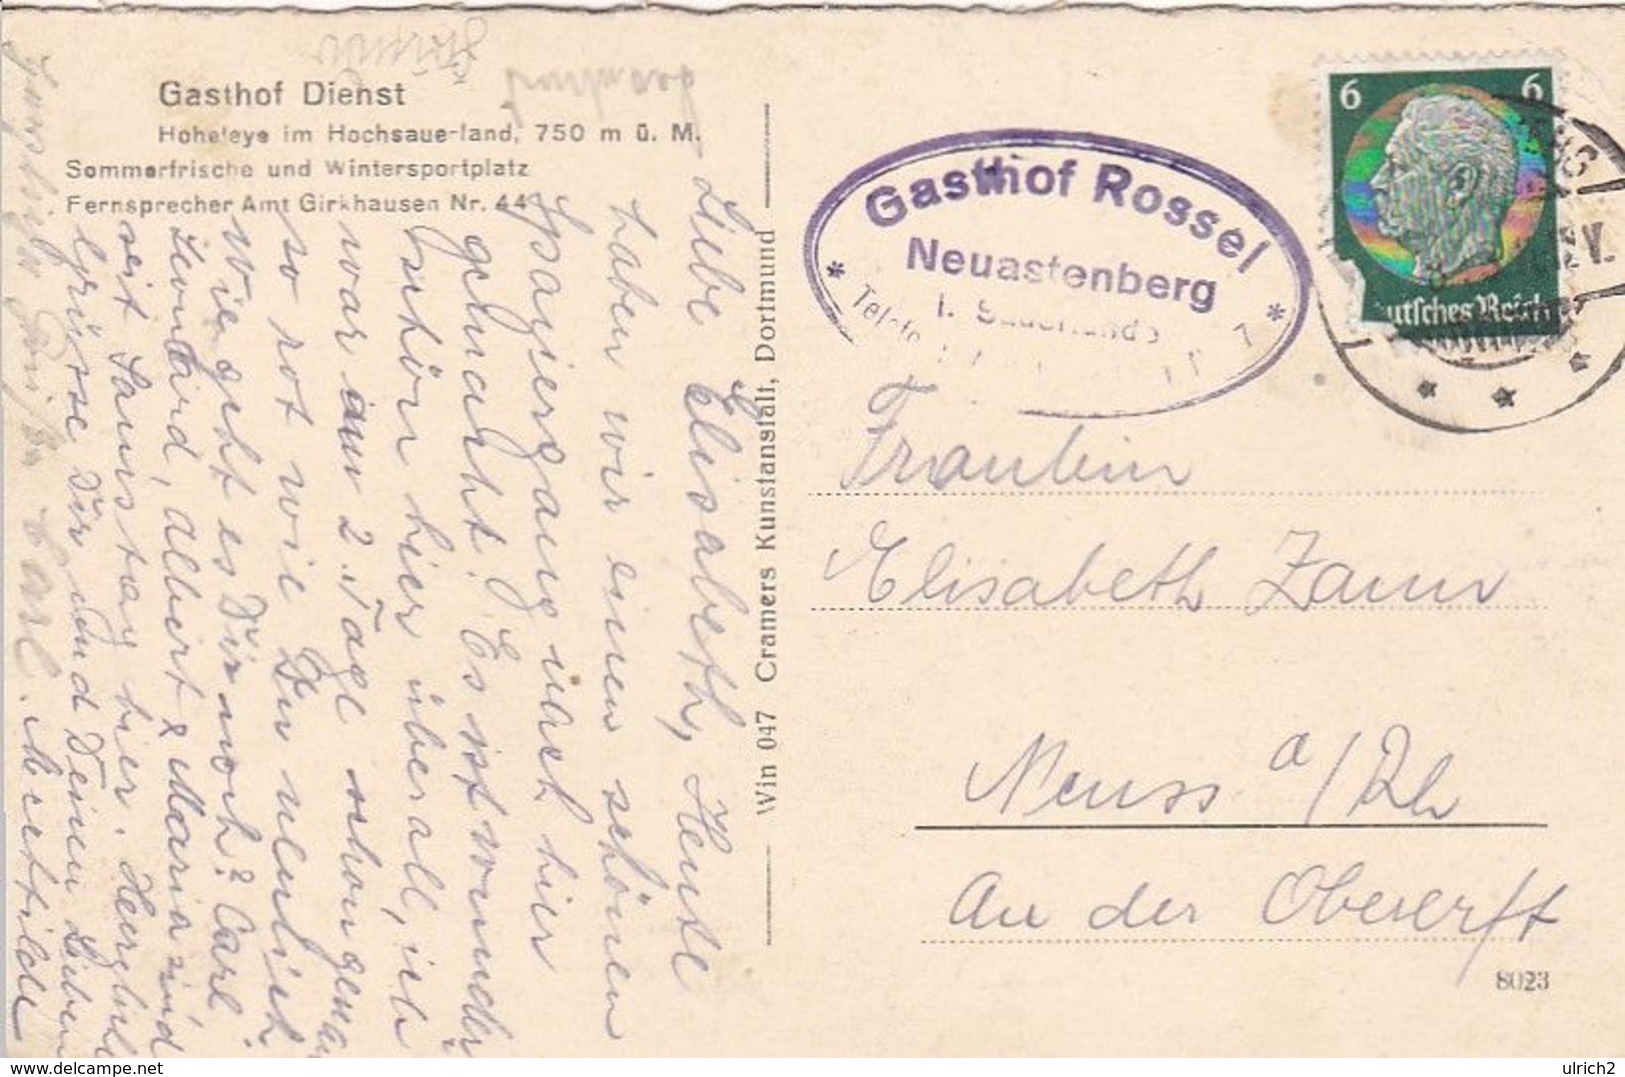 Gasthof Dienst
Hoheleye im Hochsauerland, 750 m ü. M.
Sommerfrische und Wintersportplatz
Fernsprecher Amt Girkhausen Nr. 44
Liebe Elisabeth, Heute
haben wir einen schönen
Spaziergang nach hier
gemacht. Es ist wunder
schön hier überall, ich
war am 2. Tage schon genau
so rot wie Du neulich
Wie geht es Dir noch? Carl
Leonhard, Albert & Maria sind
seit Samstag hier. Herzliche
Grüsse Dir und Deinen Lieben
Carl. Mechtilde
Win 047 Cramers Kunstanstalt, Dortmund
Gasthof Rossel
Neuastenberg
i. Sauerlande
* Telefo 7 *
6 6
eutsches Reich
Fräulein
Elisabeth Zann
Neuss a/Rh
An der Obererft
8023
delcampe.net
ulrich2